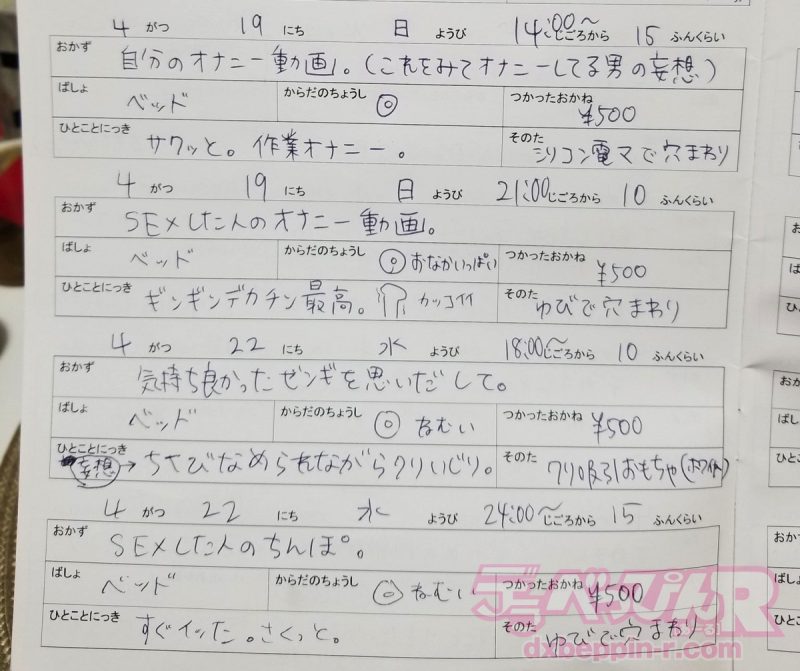 4 がつ 19 にち 日 ようび 14:00〜じごろから 15 ふんくらい
おかず 自分のオナニー動画。(これをみてオナニーしてる男の妄想)
ばしょ ベッド からだのちょうし ◎ つかったおかね ¥500
ひとことにっき サクッと。作業オナニー。 そのた シリコン電マで穴まわり
4 がつ 19 にち 日 ようび 21:00じごろから 10 ふんくらい
おかず SEXした人のオナニー動画。
ばしょ ベッド からだのちょうし ◎ おなかいっぱい つかったおかね ¥500
ひとことにっき ギンギンデカチン最高。 カッコイイ そのた ゆびで穴まわり
4 がつ 22 にち 水 ようび 18:00〜じごろから 10 ふんくらい
おかず 気持ち良かったゼンギを思いだして。
ばしょ ベッド からだのちょうし ◎ ねむい つかったおかね ¥500
ひとことにっき 妄想→ちくびなめられながらクリいじり。 そのた クリ吸引おもちゃ
4 がつ 22 にち 水 ようび 24:00〜じごろから 15 ふんくらい
おかず SEXした人のちんぽ。
ばしょ ベッド からだのちょうし ◎ ねむい つかったおかね ¥500
ひとことにっき すぐイッた。さくっと。 そのた ゆびで穴まわり
デラべっぴんR
dxbeppin-r.com